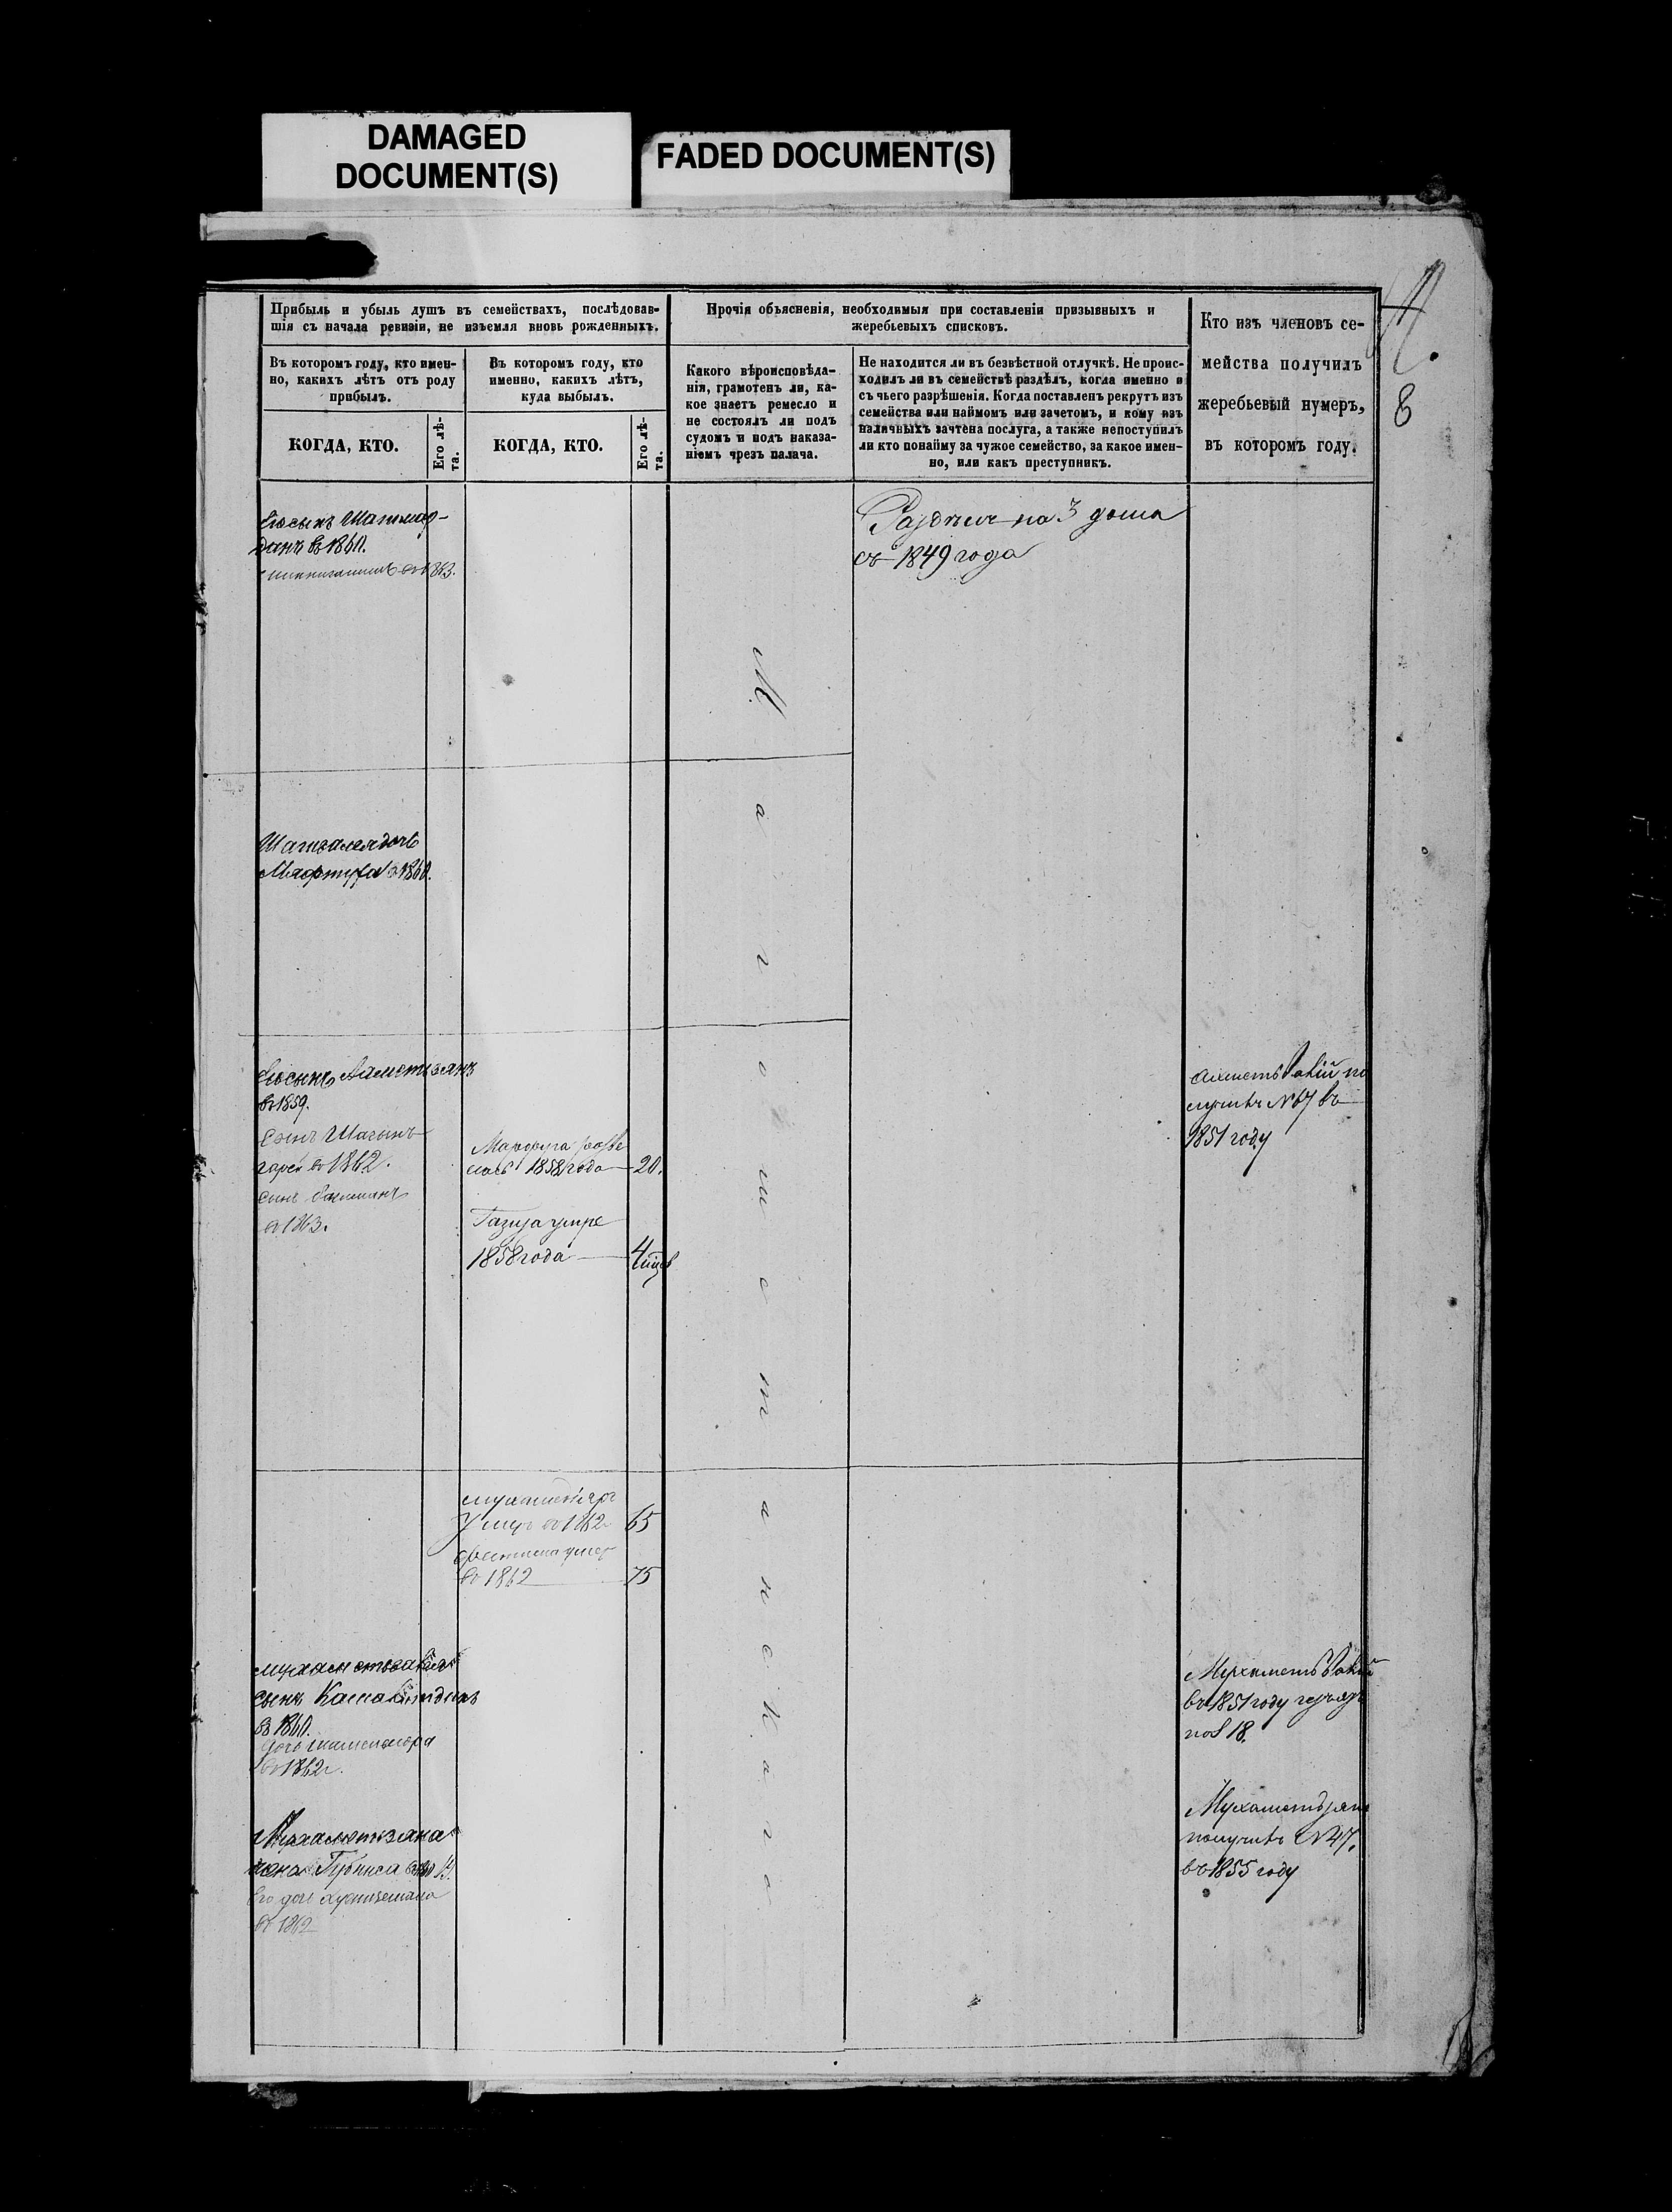 DAMAGED
DOCUMENT(S)
FADED DOCUMENT(S)
8
Прибыль и убыль душъ въ семействахъ, послѣдовав-
шія съ начала ревизіи, не изъемля вновь рожденныхъ.
Прочія объясненія, необходимыя при составленіи призывныхъ и
жеребьевыхъ списковъ.
Кто изъ членовъ се-
мейства получилъ
жеребьевый нумеръ,
въ которомъ году.
Въ которомъ году, кто имен-
но, какихъ лѣтъ отъ роду
прибылъ.
Въ которомъ году, кто
именно, какихъ лѣтъ,
куда выбылъ.
Какого вѣроисповѣда-
нія, грамотенъ ли, ка-
кое знаетъ ремесло и
не состоялъ ли подъ
судомъ и подъ наказа-
ніемъ чрезъ палача.
Не находится ли въ безвѣстной отлучкѣ. Не проис-
ходилъ ли въ семействѣ раздѣлъ, когда именно и
съ чьего разрѣшенія. Когда поставленъ рекрутъ изъ
семейства или наймомъ или зачетомъ, и кому изъ
наличныхъ зачтена послуга, а также непоступилъ
ли кто понайму за чужое семейство, за какое имен-
но, или какъ преступникъ.
КОГДА, КТО.
Его лѣ-
та.
КОГДА, КТО.
Его лѣ-
та.
Его сынъ Шагимар-
данъ въ 1860.
въ 1863.
Раздѣлъ на 3 дома
съ 1849 года
Магометанскаго
Шагивалея дочь
въ 1860.
Его сынъ Ахметзянъ
въ 1859.
Сынъ Шагин
гарей въ 1862.
сынъ
въ 1863.
1858 года 20.
умре
1858 года 4
Ахметъ Вакій по
лучилъ №67 въ
1851 году
умеръ въ 1862 65
умер
въ 1862 75
сынъ Камалитдинъ
въ 1860.
дочь
въ 1862 г.
Мухаметзяна
Его дочь
въ 1862
Мухаметъ Вакій
въ 1851 году
18.
Мухаметзянъ
получилъ №47.
въ 1855 году